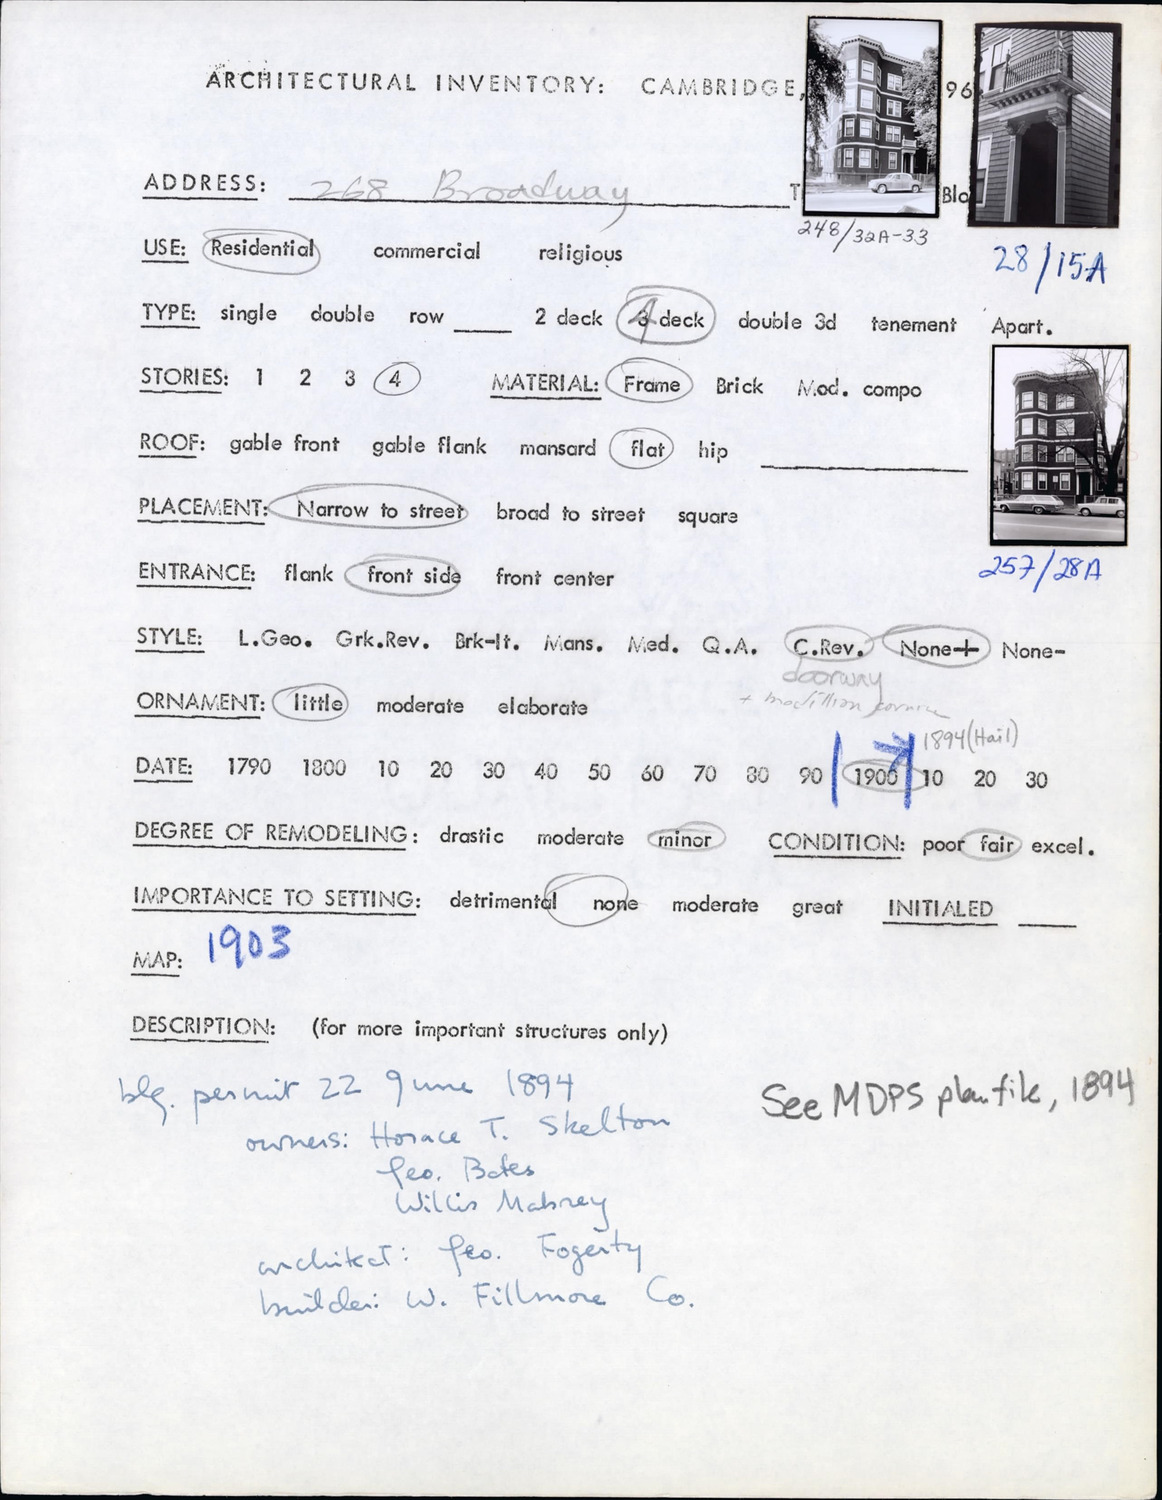 ARCHITECTURAL INVENTORY: CAMBRIDGE, 96
ADDRESS: 268 Broadway T Blo
248/32A-33
28/15A
USE: Residential commercial religious
TYPE: single double row ____ 2 deck 4 deck double 3d tenement Apart.
STORIES: 1 2 3 4 MATERIAL: Frame Brick Mod. compo
ROOF: gable front gable flank mansard flat hip ____
PLACEMENT: Narrow to street broad to street square
ENTRANCE: flank front side front center
257/28A
STYLE: L.Geo. Grk.Rev. Brk-It. Mans. Med. Q.A. C.Rev. None+ None-
doorway
+ modillion cornice
ORNAMENT: little moderate elaborate
1894 (Hail)
DATE: 1790 1800 10 20 30 40 50 60 70 80 90 1900 10 20 30
DEGREE OF REMODELING: drastic moderate minor CONDITION: poor fair excel.
IMPORTANCE TO SETTING: detrimental none moderate great INITIALED ____
MAP: 1903
DESCRIPTION: (for more important structures only)
blg. permit 22 June 1894
See MDPS plan file, 1894
owners: Horace T. Skelton
Geo. Bates
Willis
architect: Geo. Fogerty
builder: W. Fillmore Co.